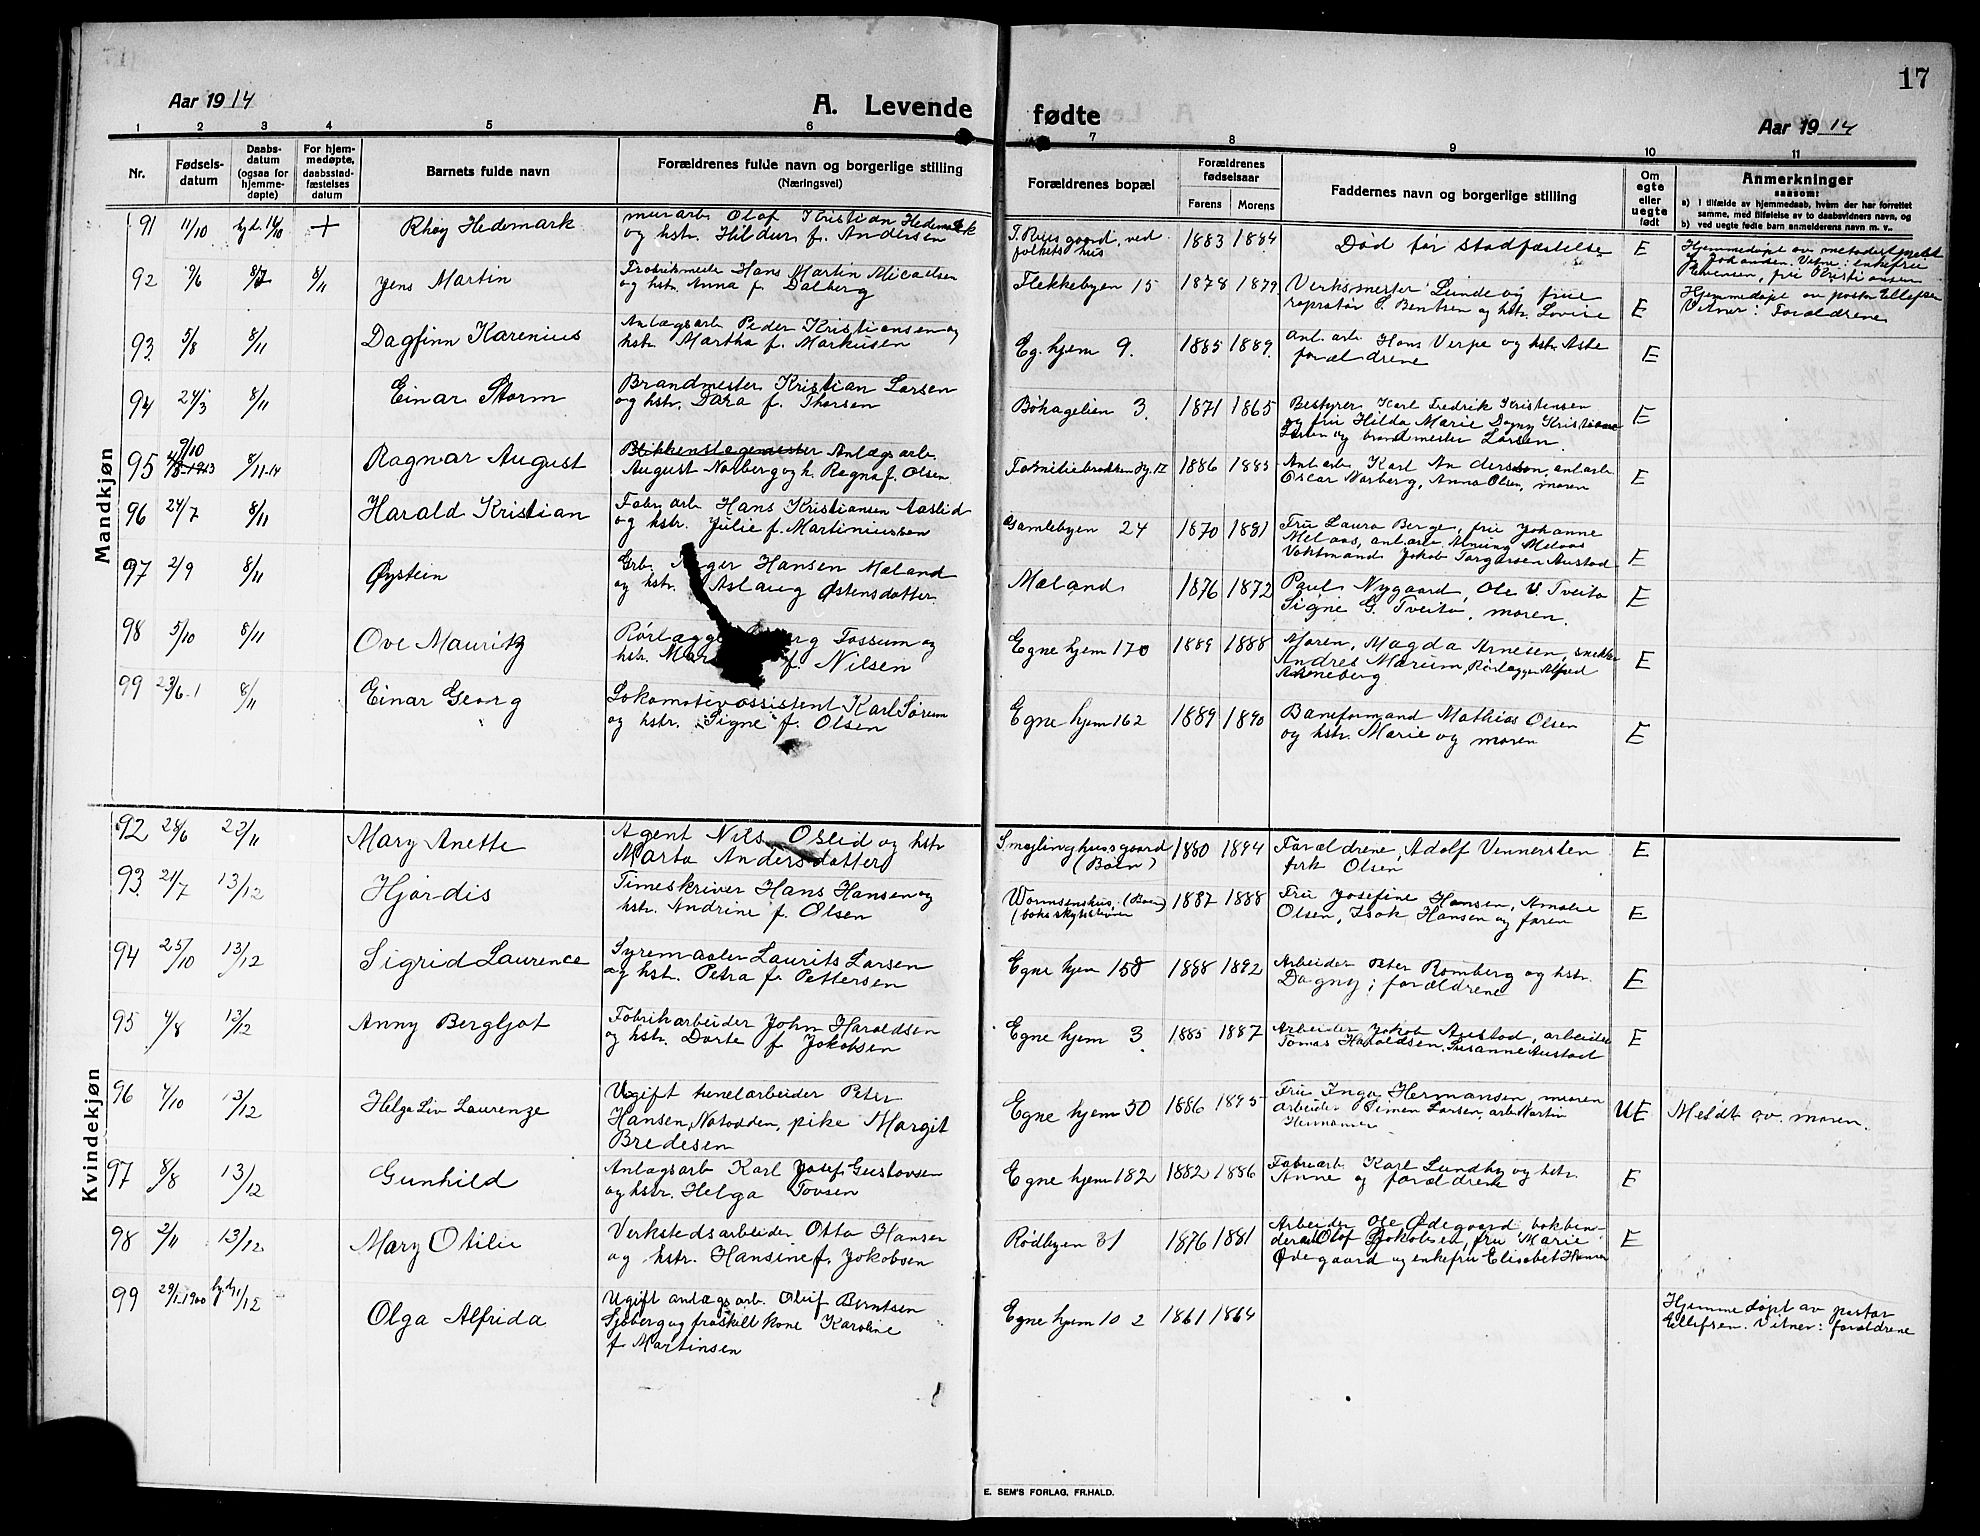 17
Aar 1914
A. Levende
fødte
Aar 1914
1 2 3 4 5 6 7 8 9 10 11
Nr.
Fødsels-
datum
Daabs-
datum
(ogsaa for
hjemme-
døpte)
For hjem-
medøpte,
daabsstad-
fæstelses
datum
Barnets fulde navn
Forældrenes fulde navn og borgerlige stilling
(Næringsvei)
Forældrenes bopæl
Forældrenes
fødselsaar
Farens
Morens
Faddernes navn og borgerlige stilling
Om
egte
eller
uegte
født
Anmerkninger
saasom:
a) I tilfælde av hjemmedaab, hvem der har forrettet
samme, med tilføielse av to daabsvidners navn, og
b) ved uegte fødte barn anmelderens navn m. v.
Mandkjøn
91 11/10 hj.d. 14/10 + Rhoy Hedemark
murarb. Olaf Kristian Hedemark
og hstr. Hildur f. Andersen
ved
folkets hus
1883 1884 Død før stadfæstelse E
Hjemmedøpt av metodistprest
Johansen. Vitne: enkefru
fru Kristiansen
92 9/6 8/7 8/11 Jens Martin
Hans Martin Micaelsen
og hstr. Anna f. Dalberg
Flekkebyen 15 1878 1879
Verksmester Lunde og frue
S. Bentsen og hstr. Lovise E
Hjemmedøpt av pastor Ellefsen
Vitner: Forældrene
93 5/8 8/11 Dagfinn Karenius
Anlægsarb. Peder Kristiansen og
hstr. Martha f. Markusen
Eg. hjem 9. 1885 1889.
anl. arb. Hans Verpe og hstr. Aste
forældrene E
94 24/3 8/11 Einar Storm
Brandmester Kristian Larsen
og hstr. Dora f. Thorsen
Bøhagelien 3. 1871 1865
Bestyrer Karl Fredrik Kristensen
og fru Hilda Marie Dagny Kristiane
Larsen og brandmester Larsen E
95 9/10 1913 8/11-14 Ragnar August
Blikkenslagermester Anlægsarb.
August Norberg og h. Ragna f. Olsen
1886 1885
Anl. arb. Karl Andersson, anl. arb.
Oscar Norberg, Anna Olsen, moren E
96 24/7 8/11 Harald Kristian
Fabr. arb. Hans Kristiansen Aaslid
og hstr. Julie f. Martiniussen
Gamlebyen 24 1870 1881
Fru Laura Berge, fru Johanne
Melaas, anl. arb. Melaas
Vaktmand Jakob Torgersen Austad E
97 2/9 8/11 Øystein
Hansen Mæland
og hstr. Aslaug Østensdatter
Mæland 1876 1872
Paul Nygaard, Ole V. Tveito
Signe G. Tveito, moren. E
98 5/10 8/11 Ove Mauritz
Fossum og
hstr. f. Nilsen
Egne hjem 170 1889 1888
Moren, Magda Arnesen, snekker
Andres Marum, Rørlægger Alfred
E
99 23/6.1 8/11 Einar Georg
Lokomotivassistent Karl Sørum
og hstr. Signe f. Olsen
Egne hjem 162 1889 1890
Baneformand Mathias Olsen
og hstr. Marie og moren E
Kvindekjøn
92 28/6 22/11 Mary Anette
Agent Nils Oslid og hstr
Marta Andersdatter
(Bøen) 1880 1894
Forældrene, Adolf Vennersten
Olsen E
93 21/7 13/12 Hjørdis
Timeskriver Hans Hansen og
hstr. Andrine f. Olsen
1887 1888
Fru Josefine Hansen, Amalie
Olsen, Isak Hansen og faren E
94 25/10 13/12 Sigrid Laurence
Syremaaler Laurits Larsen
og hst. Petra f. Pettersen
Egne hjem 158 1888 1892
Arbeider Peter Romberg og hstr.
Dagny; forældrene E
95 4/8 13/12 Anny Bergljot
Fabrikarbeider John Haraldsen
og hstr. Dorte f. Jakobsen
Egne hjem 3 1885 1887
Arbeider Jakob Austad, arbeider
Tomas Haraldsen. Susanne Austad E
96 4/10 13/12 Helga Liv Laurenze
Ugift tunelarbeider Peter
Hansen, Notodden, pike Margit
Bredesen
Egne hjem 50 1886 1895
Fru Inga Hermansen, moren
arbeider Simen Larsen, arb. Martin
Hermansen UE Meldt av moren.
97 8/8 13/12 Gunhild
Anlægsarb. Karl Josef Gustavsen
og hstr. Helga Tovsen
Egne hjem 182 1882 1886
Fabr. arb. Karl Lundby og hstr.
Anne og forældrene E
98 2/11 13/12. Mary Otilie
Verkstedsarbeider Otto Hansen
og hstr. Hansine f. Jakobsen
Rødbyen 31 1876 1881
Arbeider Ole Ødegaard, bokbin-
der Olaf Jakobsen, fru Marie
Ødegaard og enkefru Elisabet Hansen E
99 29/1-1900 hj. d. 1/12 Olga Alfrida
Ugift anlægsarb. Oluf Berntsen
Sjøberg og fraskilt kone Karoline
f. Martinsen
Egne hjem 102 1861 1864
Hjemmedøpt av pastor
Ellefsen. Vitner: forældrene
E. SEM'S FORLAG, FR.HALD.